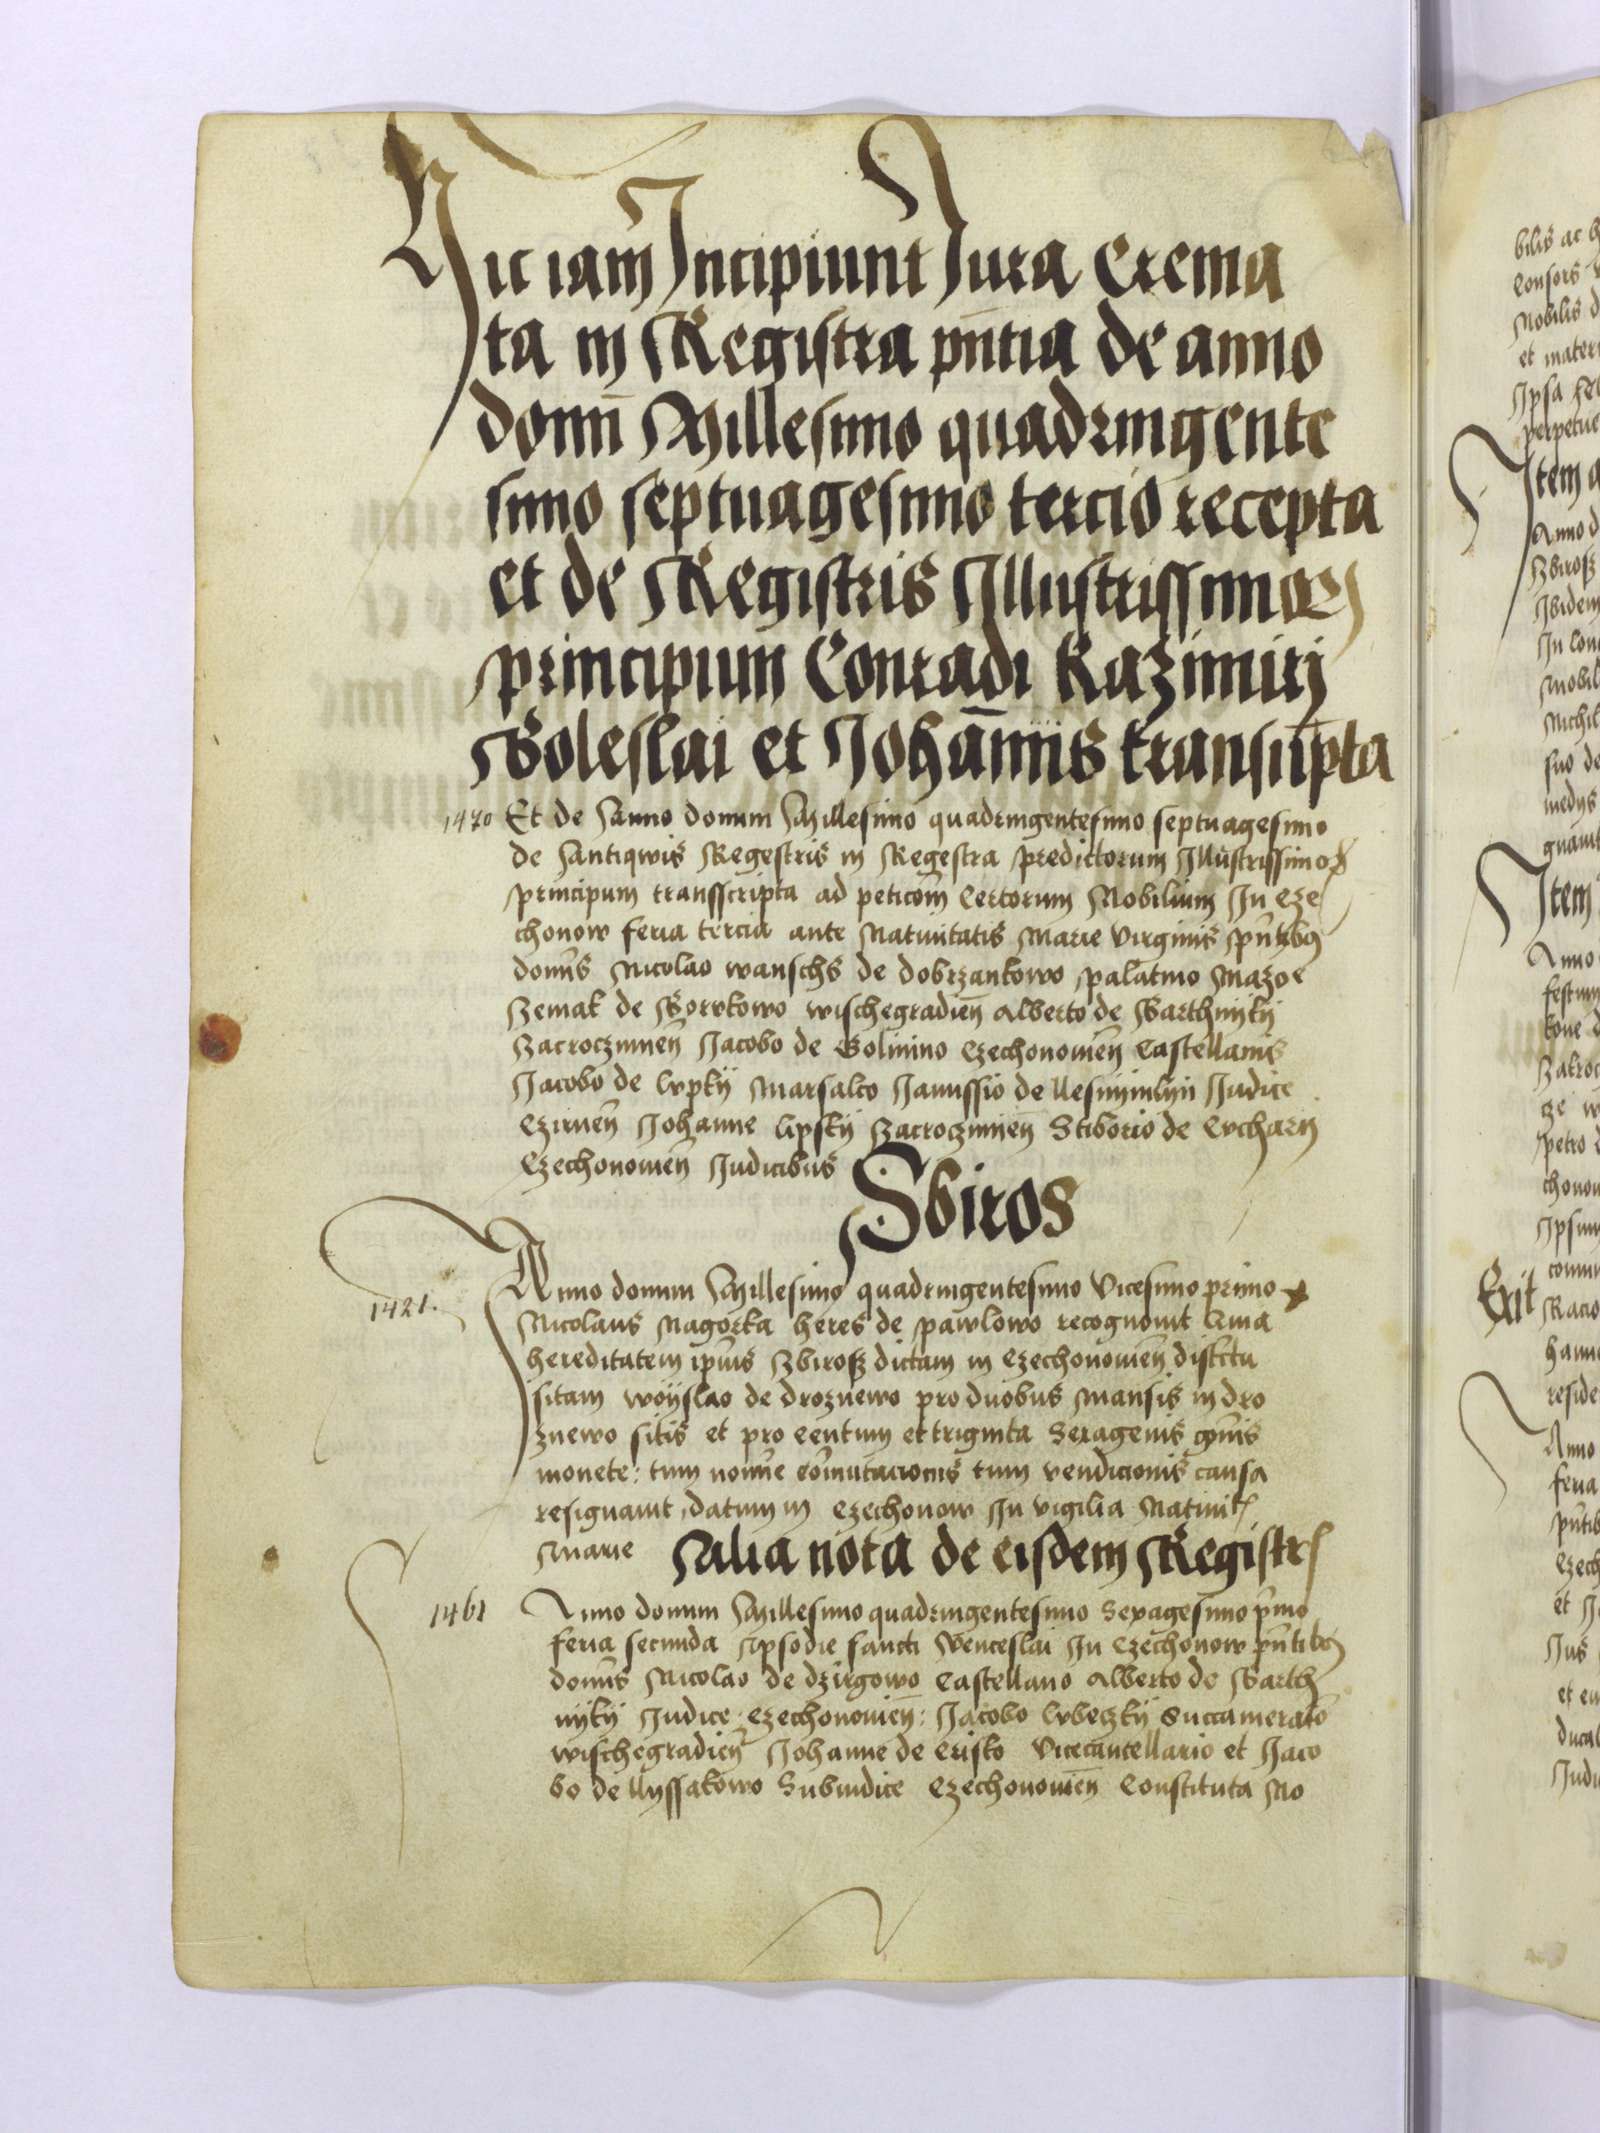 Hic iam Incipiunt Iura Crema
ta in Registra pn̄tia de anno
domī Millesimo quadringente
simo septuagesimo tercio recepta
et de Registris Illustrissimoꝝ
principum Conradi Kazimiri
Boleslai et Johān̄is transup̄ta
1470 Et de Anno domini Millesimo quadringentesimo septuagesimo
de Antiqwis Regestris in Regestra predictorum Illustrissimoꝝ
principum transscripta ad peticōm certorum Nobilium In Cze
chonow feria tercia ante Natiuitatis Marie virginis pn̄tibꝫ
domīs Nicolao wanschs de dobrzankowo palatino Mazoe
Zemak de Borvkowo wischegradien̄ Alberto de Barthnÿkÿ
Zacroczimen̄ Jacobo de Golimino Czechonouien̄ Castellanis
Jacobo de lvpkÿ Marsalco Janussio de Judice
Czirnen̄ Johanne lipskÿ Zacroczimien̄ Stiborio de
Czechonouien̄ Judicibus
Sbiros
Anno domini Millesimo quadringentesimo vicesimo primo
1421. Nicolaus Nagorka heres de pawlowo recognouit
hereditatem ip̄ius Zbirosz dictam in Czechonouien̄ disītu
sitam woÿslao de droznewo pro duobus mansis in dro
znewo sitis et pro centum et triginta Sexagenis
monete: tum noīne cōmutacionis tum vendicionis causa
resignauit datum in Czechonow In vigilia Natiuit̄
Marie Alia nota de eisdem Registrꝭ
1461 Anno domini Millesimo quadringentesimo Sexagesimo p̄mo
feria secunda ipsodie sancti Wenceslai In Czechonow pn̄tibꝫ
domīs Nicolao de dzirgowo Castellano Alberto de Barth
nÿkÿ Judice Czechonouien̄: Jacobo lvbeczkÿ Succamerario
wischegradien̄ Johanne de Crisko vicecancellario et Jaco
bo de llyssakowo Subiudice Czechonouien̄ Constituta No
bilis ac
Consors
Nobilis
et mater
Ipsa
perpetue
Item
Anno
Zbirosz
Ibidem
Nichil
Item
Anno
Exit
Anno
feria
et